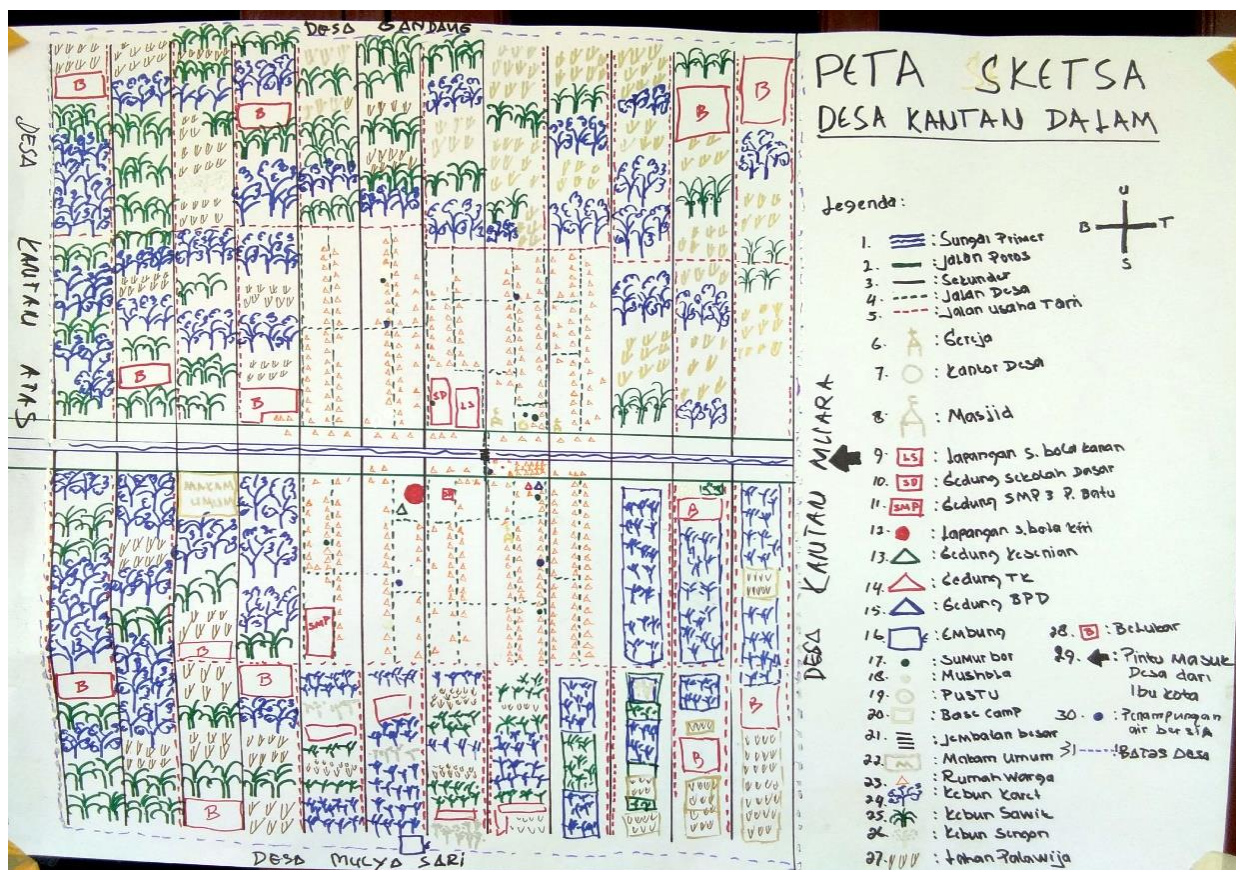 DESA GANDANG
DESA KANTAN ATAS
B
B
B
B
B
B
B
SD
LS
DESA KANTAN MUARA
MAKAM UMUM
SD
SMP
B
B
B
B
B
B
B
B
DESA MULYA SARI
PETA SKETSA
DESA KANTAN DALAM
Legenda :
U
B T
S
1. : Sungai Primer
2. : Jalan Poros
3. : Sekunder
4. : Jalan Desa
5. : Jalan Usaha Tani
6. : Gereja
7. : Kantor Desa
8. : Masjid
9. LS : Lapangan s. bola kanan
10. SD : Gedung Sekolah Dasar
11. SMP : Gedung SMP 3 P. Batu
12. : Lapangan s. bola kiri
13. : Gedung Kesenian
14. : Gedung TK
15. : Gedung BPD
16. : Embung
17. : Sumur bor
18. : Mushola
19. : PUSTU
20. : Base camp
21. : Jembatan besar
22. M : Makam Umum
23. : Rumah Warga
24. : Kebun Karet
25. : Kebun Sawit
26. : Kebun Sengon
27. : Lahan Palawija
28. B : Belukar
29. : Pintu Masuk
Desa dari
Ibu kota
30. : Penampungan
air bersih
31 : Batas Desa